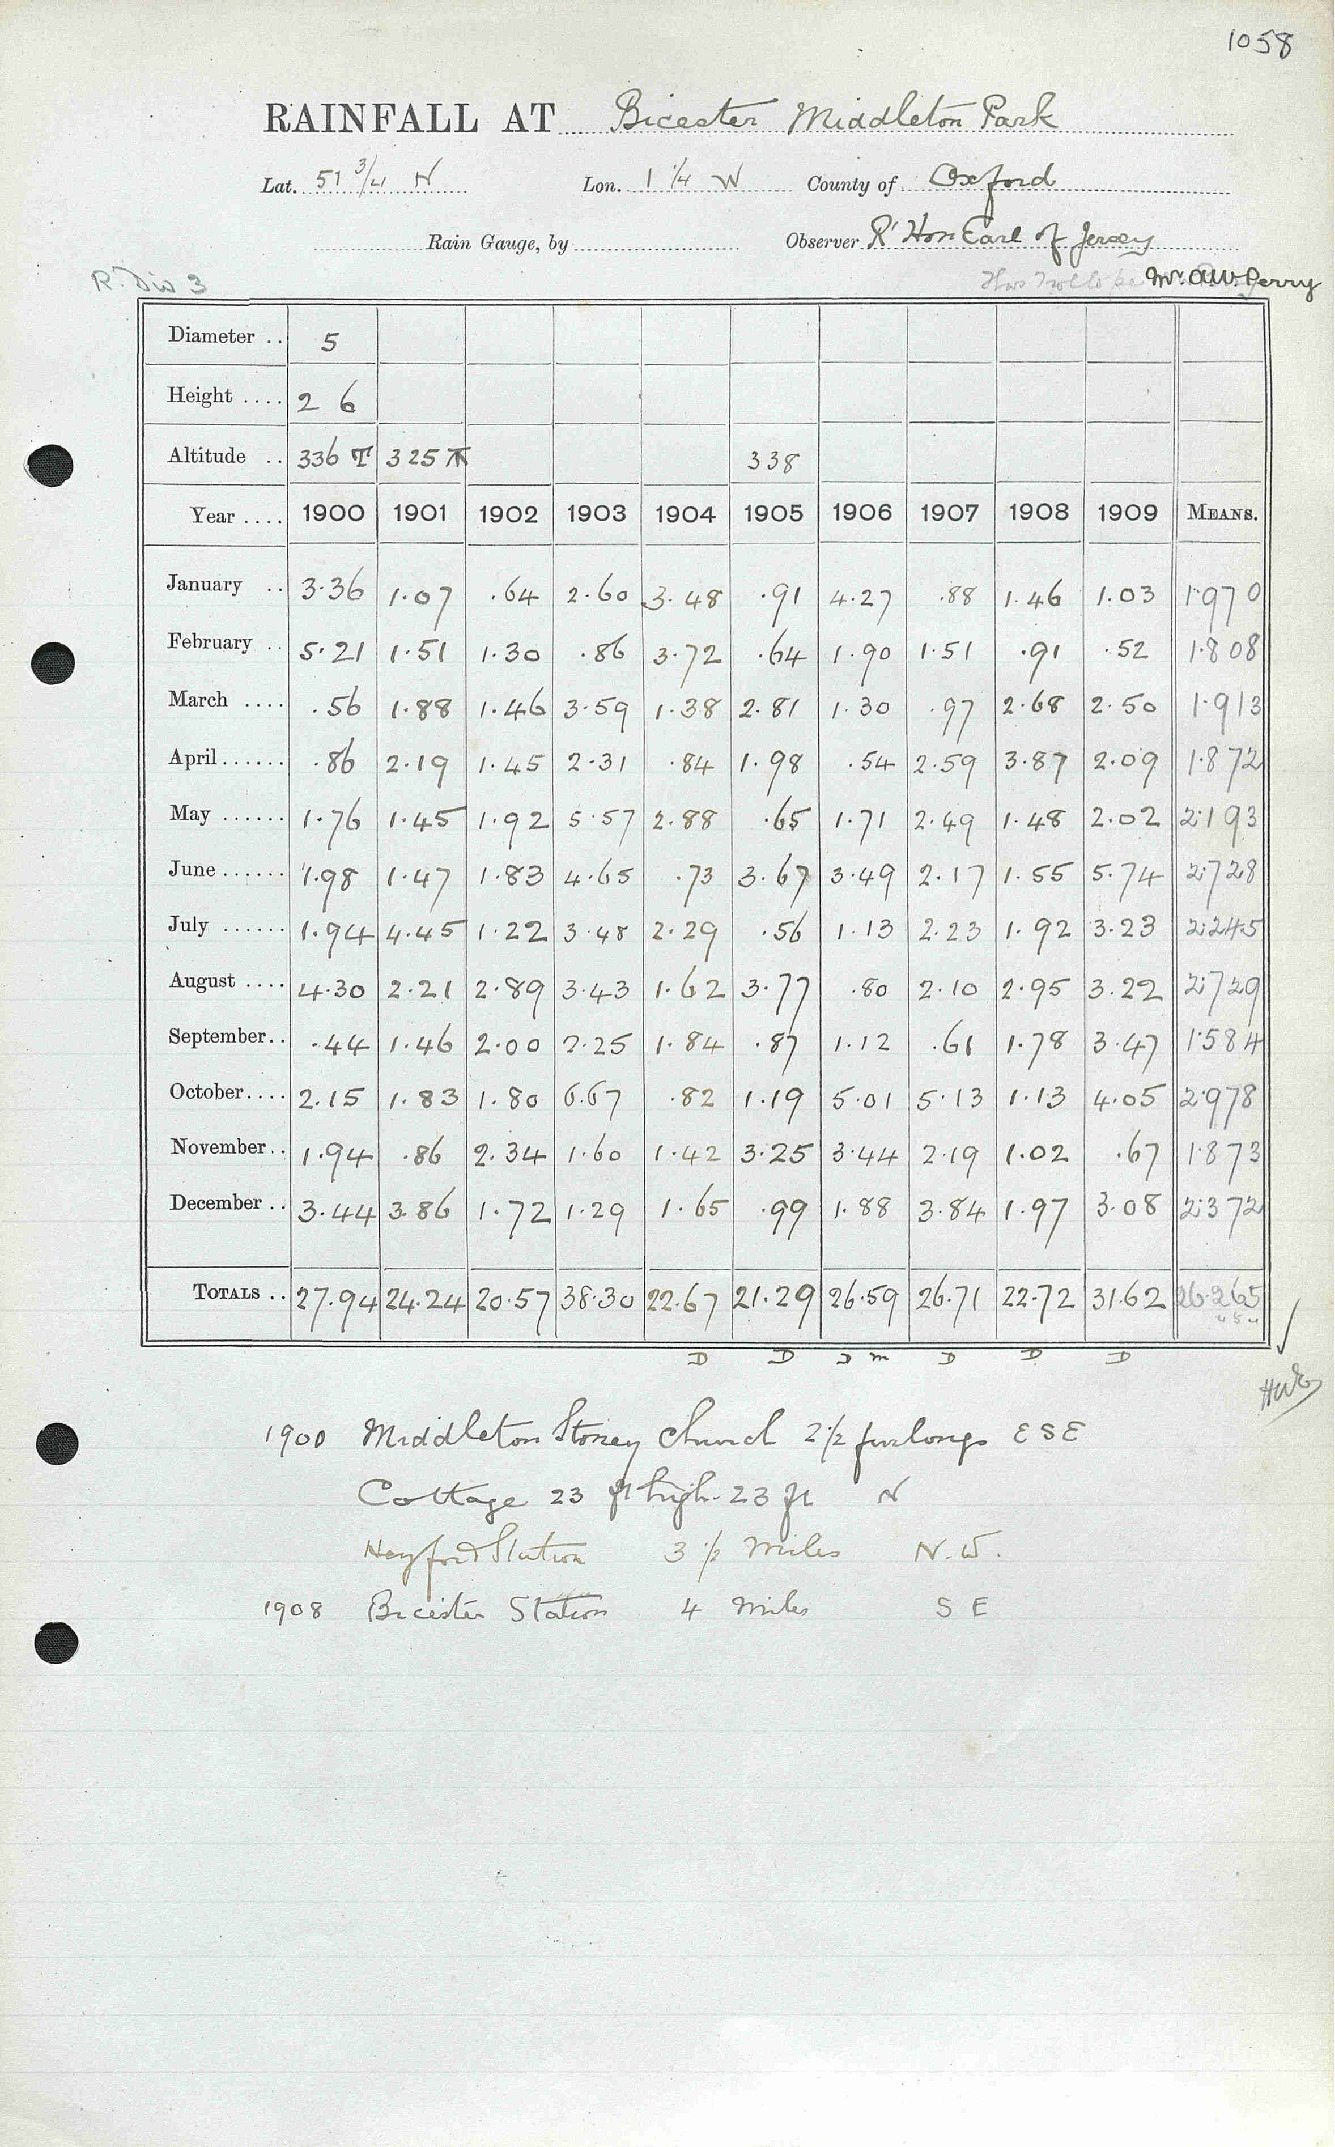 1058
RAINFALL AT Bicester Middleton Park
Lat. 51 3/4 N Lon. 1 1/4 W County of Oxford
Rain Gauge, by Observer Rt Hon Earl of Jersey
R. Div 3 Mr. A.W. Perry
Diameter .. 5
Height .... 2 6
Altitude .. 336 T 325 T 338
Year .... 1900 1901 1902 1903 1904 1905 1906 1907 1908 1909 MEANS.
January .. 3.36 1.07 .64 2.60 3.48 .91 4.27 .88 1.46 1.03 1.970
February .. 5.21 1.51 1.30 .86 3.72 .64 1.90 1.51 .91 .52 1.808
March .... .56 1.88 1.46 3.59 1.38 2.81 1.30 .97 2.68 2.50 1.913
April...... .86 2.19 1.45 2.31 .84 1.98 .54 2.59 3.87 2.09 1.872
May ...... 1.76 1.45 1.92 5.57 2.88 .65 1.71 2.49 1.48 2.02 2.193
June...... 1.98 1.47 1.83 4.65 .73 3.67 3.49 2.17 1.55 5.74 2.728
July ...... 1.94 4.45 1.22 3.48 2.29 .56 1.13 2.23 1.92 3.23 2.245
August .... 4.30 2.21 2.89 3.43 1.62 3.77 .80 2.10 2.95 3.22 2.729
September.. .44 1.46 2.00 2.25 1.84 .87 1.12 .61 1.78 3.47 1.584
October.... 2.15 1.83 1.80 6.67 .82 1.19 5.01 5.13 1.13 4.05 2.978
November.. 1.94 .86 2.34 1.60 1.42 3.25 3.44 2.19 1.02 .67 1.873
December .. 3.44 3.86 1.72 1.29 1.65 .99 1.88 3.84 1.97 3.08 2.372
TOTALS .. 27.94 24.24 20.57 38.30 22.67 21.29 26.59 26.71 22.72 31.62 26.265
D D D m D D D
1900 Middleton Stoney Church 2 1/2 furlongs E S E
Cottage 23 ft high. 23 ft N
Heyford Station 3 1/2 Miles N.W.
1908 Bicester Station 4 Miles S E